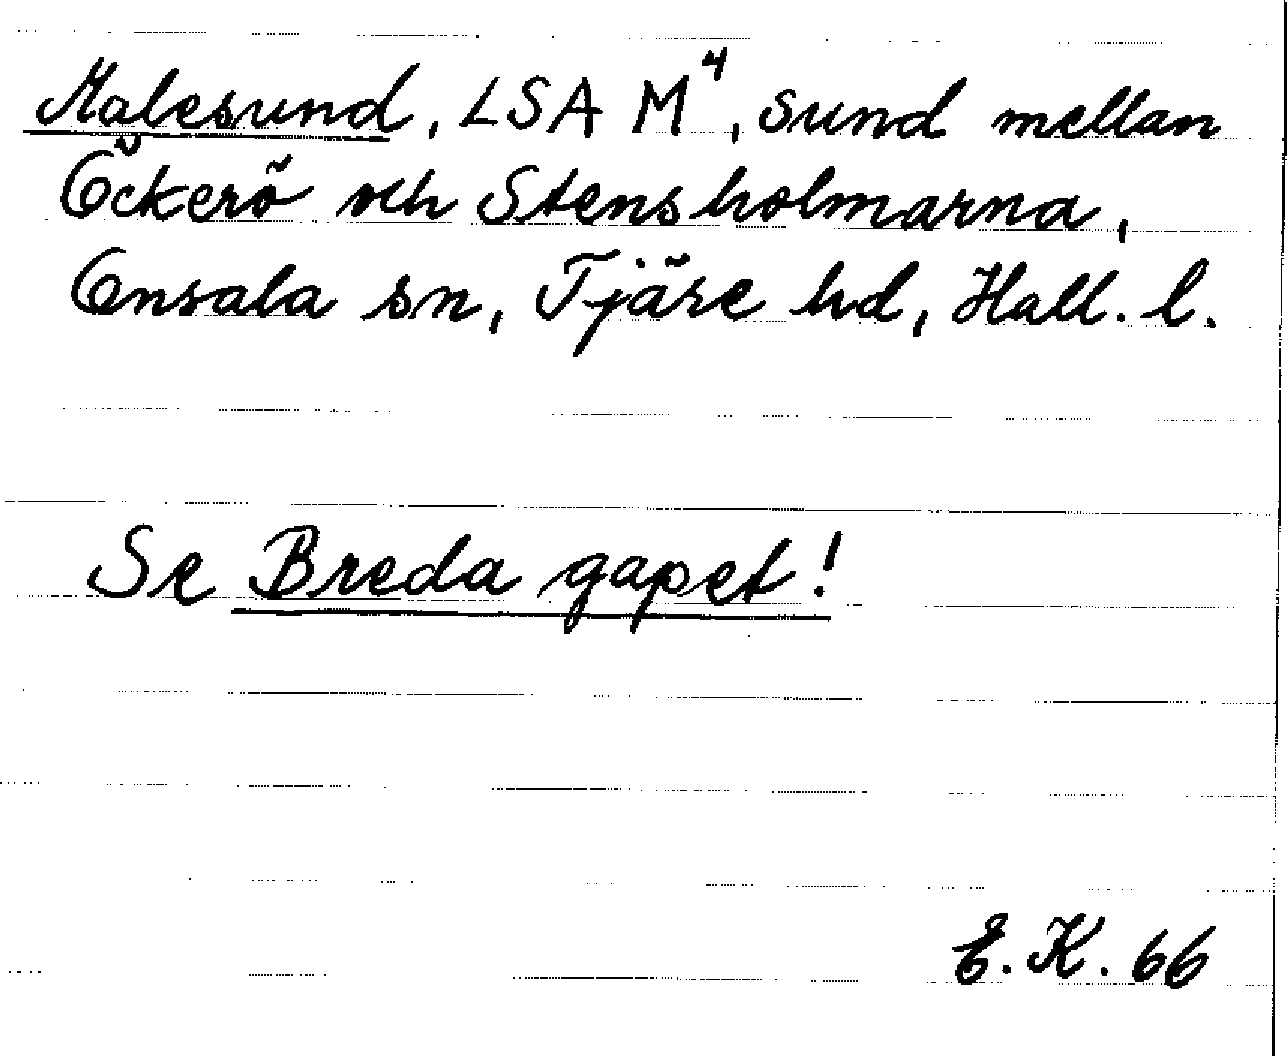 Malesund, LSA M⁴, sund mellan
Öckerö och Stensholmarna,
Onsala sn, Fjäre hd, Hall. l.
Se Breda gapet!
E.K. 66